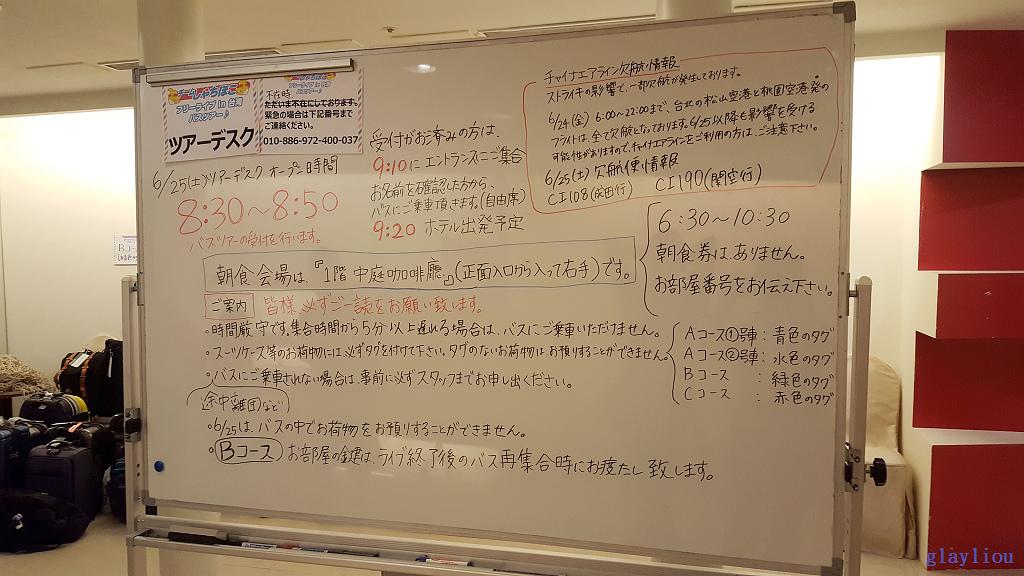 チームしゃちほこ
フリーライブ in 台湾
バスツアー♪
ツアーデスク
不在時
ただいま不在にしております。
緊急の場合は下記番号まで
ご連絡ください。
010-886-972-400-037
6/25(土)ツアーデスク オープン時間
8:30〜8:50
バスツアーの受付を行います。
受付がお済みの方は、
9:10に エントランスにご集合
お名前を確認した方から、
バスにご乗車頂きます。(自由席)
9:20 ホテル出発予定
チャイナエアライン欠航情報
ストライキの影響で、一部欠航が発生しております。
6/24(金) 6:00〜22:00まで、台北の松山空港と桃園空港発の
フライトは、全て欠航となっております。6/25以降も影響を受ける
可能性がありますので、チャイナエアラインをご利用の方は、ご注意下さい。
6/25(土)欠航便情報
CI108(成田行) CI190(関空行)
朝食会場は『1階 中庭咖啡廳』(正面入口から入って右手)です。
6:30〜10:30
朝食券はありません。
お部屋番号をお伝え下さい。
ご案内 皆様、必ずご一読をお願い致します。
・時間厳守です。集合時間から5分以上遅れる場合は、バスにご乗車いただけません。
・スーツケース等のお荷物には、必ずタグを付けて下さい。タグのないお荷物は、お預りすることができません。
Aコース①号車:青色のタグ
Aコース②号車:水色のタグ
Bコース :緑色のタグ
Cコース :赤色のタグ
・バスにご乗車されない場合は、事前に必ずスタッフまでお申し出ください。
(途中離団など)
・6/25は、バスの中でお荷物をお預りすることができません。
・Bコース お部屋の鍵は、ライブ終了後のバス再集合時にお渡し致します。
glayliou